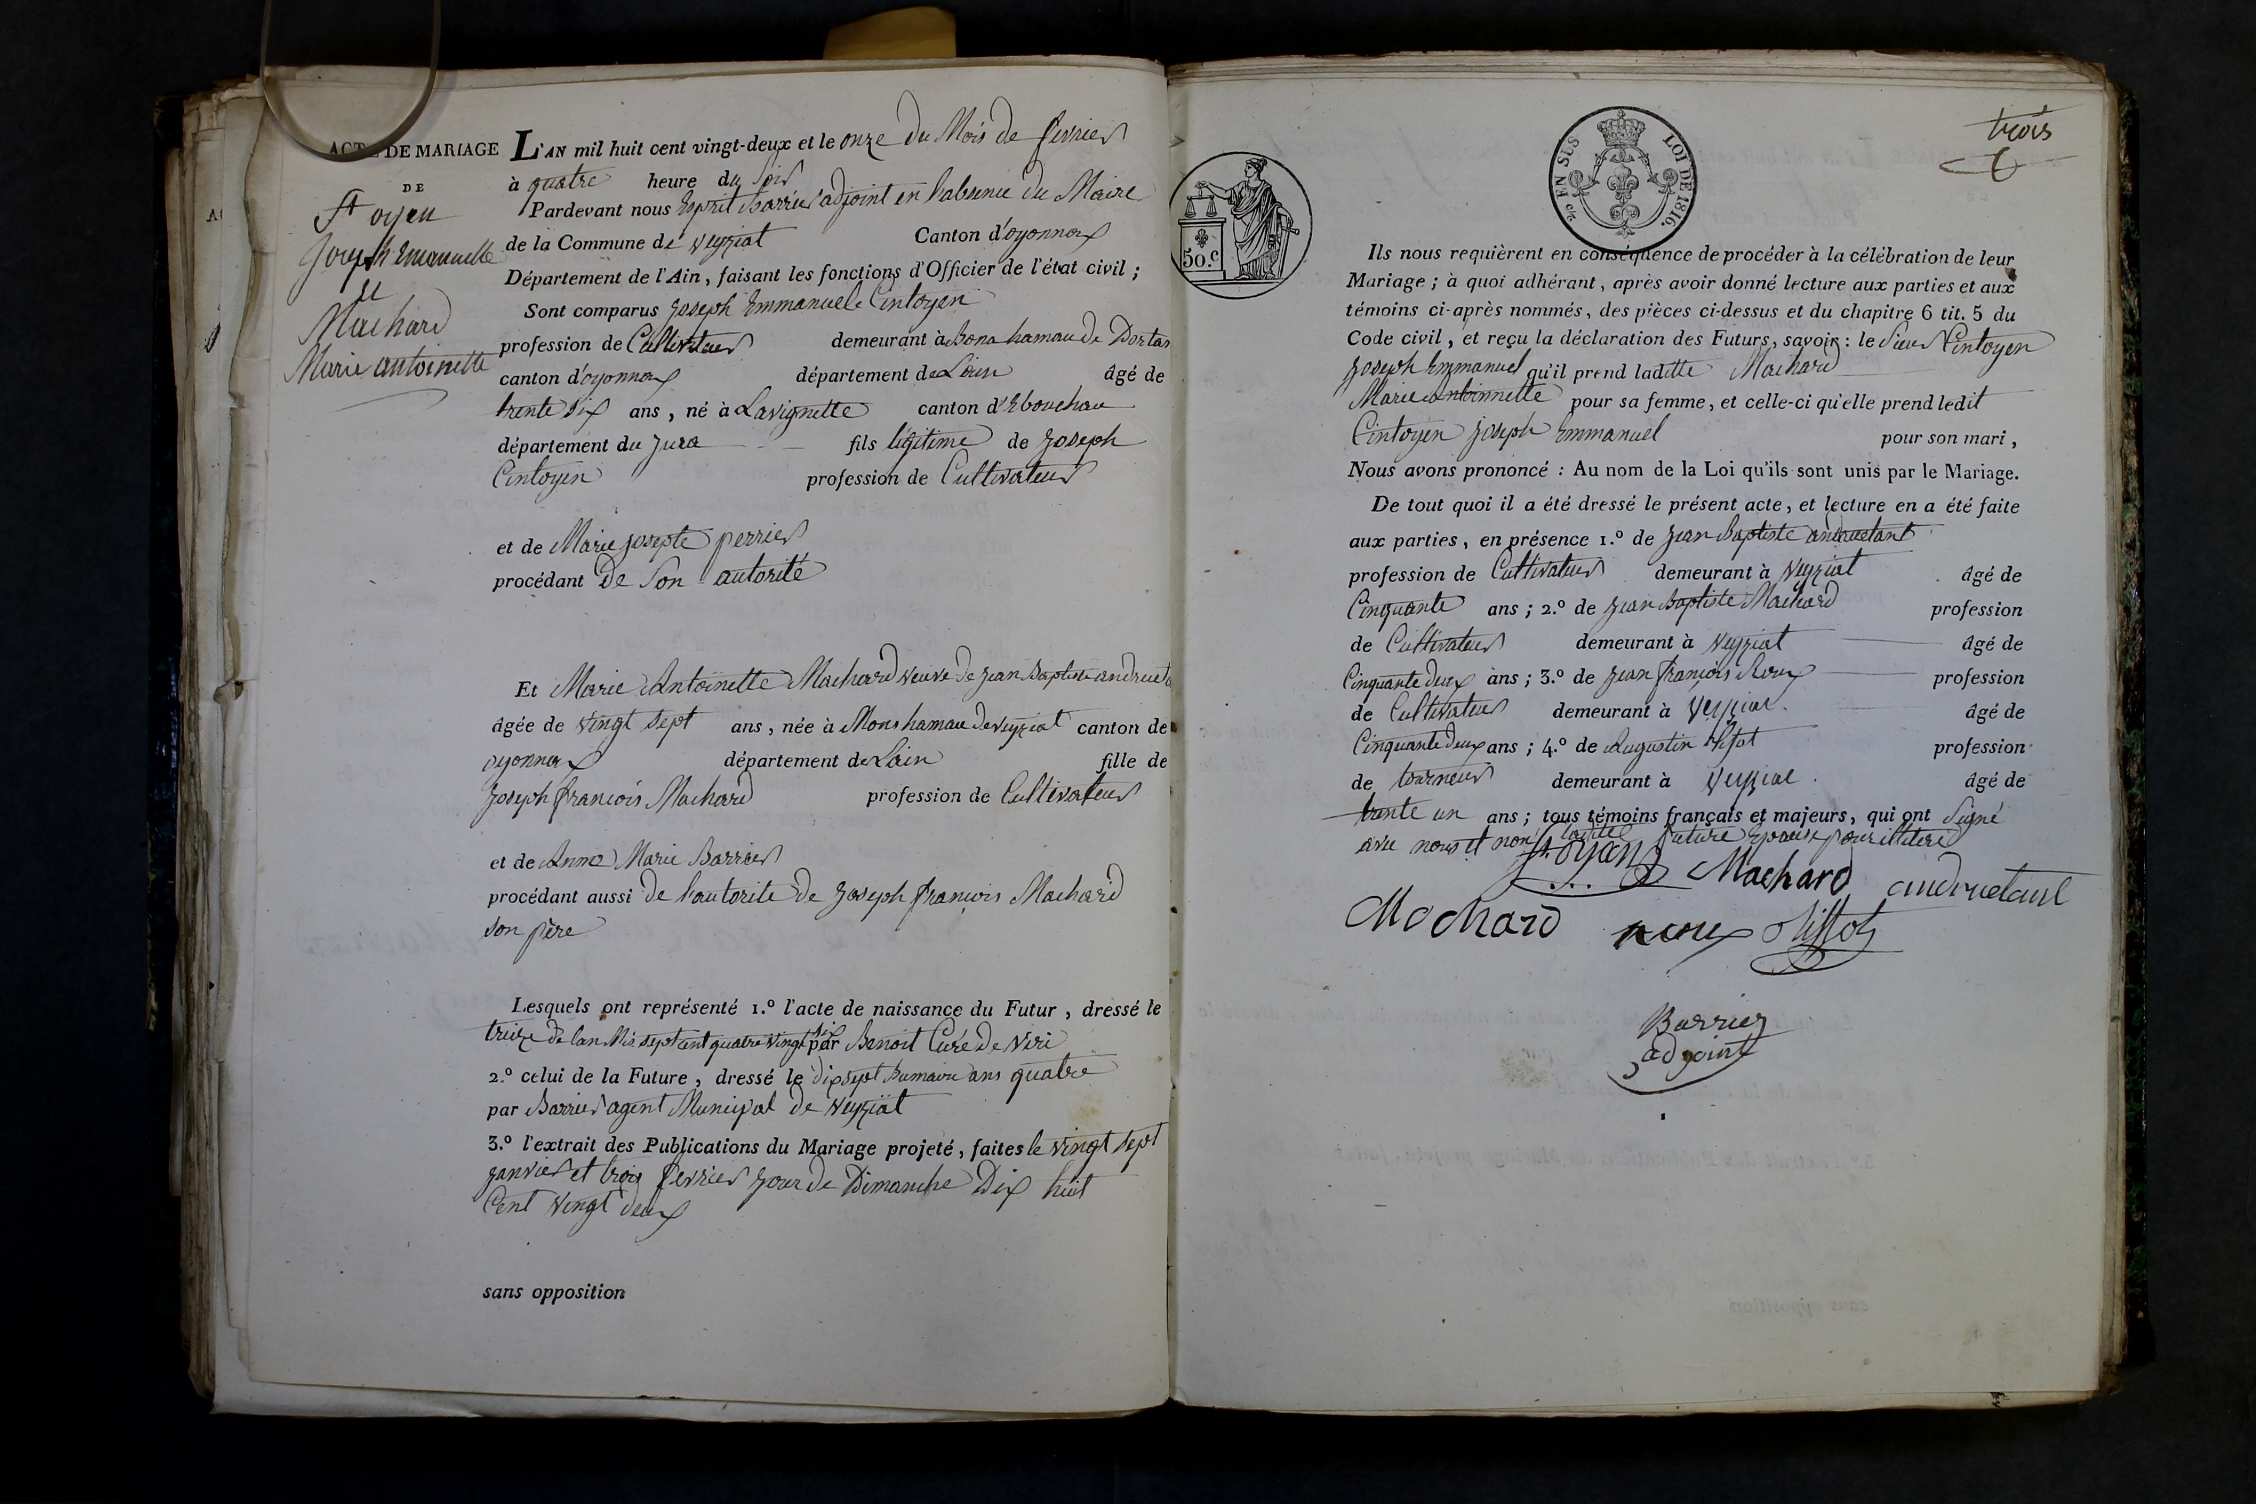 ACTE DE MARIAGE
DE
St oyen
Joseph Emanuelle
et
Machard
Marie antoinette
L'AN mil huit cent vingt-deux et le onze du Mois de fevrier
à quatre heure du Soir
Pardevant nous Esprit Barrier adjoint en labsence du Maire
de la Commune de Veyziat Canton d'oyonnax
Département de l'Ain, faisant les fonctions d'Officier de l'état civil ;
Sont comparus Joseph Emmanuel Cintoyen
profession de Cultivateur demeurant à Bona hamau de Dortan
canton d'oyonnax département de Lain âgé de
trente six ans, né à Lavignette canton d'Ebouchau
département du Jura fils légitime de Joseph
Cintoyen profession de Cultivateur
et de Marie Josepte perrier
procédant de Son autorité
Et Marie Antoinette Machard veuve de Jean Baptiste andrueta
âgée de vingt sept ans, née à Mons hamau de veyziat canton de
oyonnax département de Lain fille de
Joseph francois Machard profession de Cultivateur
et de Anne Marie Barrier
procédant aussi de lautorite de Joseph françois Machard
son père
Lesquels ont représenté 1.º l'acte de naissance du Futur, dressé le
treize de lan Mil sept cent quatre vingt six par Benoit Curé de Viri
2.º celui de la Future, dressé le dix sept Brumaire ans quatre
par Barrier agent Municipal de Veyziat
3.º l'extrait des Publications du Mariage projeté, faites le vingt sept
janvier et trois fevrier jour de Dimanche Dix huit
Cent vingt deux
sans opposition
50.c
2/10 EN SUS LOI DE 1816.
trois
Ils nous requièrent en conséquence de procéder à la célébration de leur
Mariage ; à quoi adhérant, après avoir donné lecture aux parties et aux
témoins ci-après nommés, des pièces ci-dessus et du chapitre 6 tit. 5 du
Code civil, et reçu la déclaration des Futurs, savoir : le Sieur Cintoyen
Joseph Emmanuel qu'il prend laditte Machard
Marie Antoinnette pour sa femme, et celle-ci qu'elle prend ledit
Cintoyen Joseph Emmanuel pour son mari,
Nous avons prononcé : Au nom de la Loi qu'ils sont unis par le Mariage.
De tout quoi il a été dressé le présent acte, et lecture en a été faite
aux parties, en présence 1.º de Jean Baptiste andruetant
profession de Cultivateur demeurant à Veyziat âgé de
Cinquante ans ; 2.º de Jean Baptiste Machard profession
de Cultivateur demeurant à Veyziat âgé de
Cinquante deux ans ; 3.º de Jean françois Roux profession
de Cultivateur demeurant à Veyziat âgé de
Cinquante deux ans ; 4.º de Augustin profession
de tourneur demeurant à Veyziat âgé de
trente un ans ; tous témoins français et majeurs, qui ont Signé
avec nous et non laditte future Epouse pour illiteré
St oyan Machard andruetant
Machard roux
Barrier
adjoint